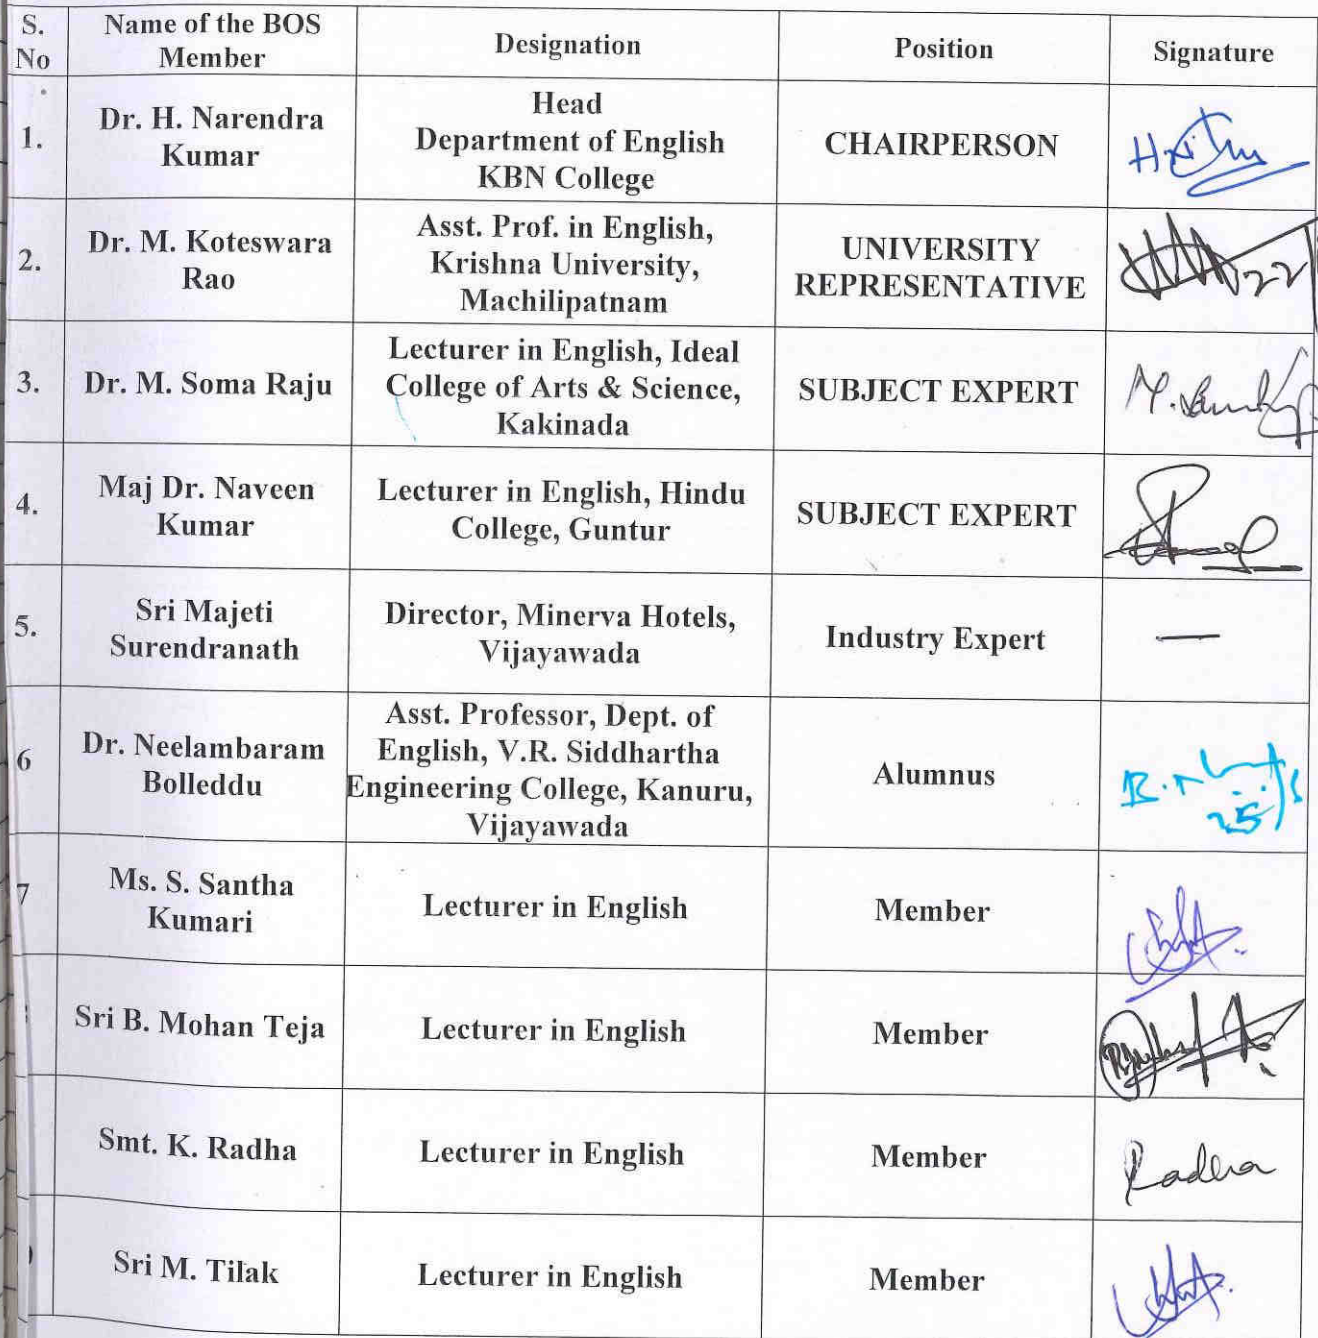 S. No
Name of the BOS
Member
Designation
Position
Signature
1.
Dr. H. Narendra
Kumar
Head
Department of English
KBN College
CHAIRPERSON
2.
Dr. M. Koteswara
Rao
Asst. Prof. in English,
Krishna University,
Machilipatnam
UNIVERSITY
REPRESENTATIVE
3.
Dr. M. Soma Raju
Lecturer in English, Ideal
College of Arts & Science,
Kakinada
SUBJECT EXPERT
4.
Maj Dr. Naveen
Kumar
Lecturer in English, Hindu
College, Guntur
SUBJECT EXPERT
5.
Sri Majeti
Surendranath
Director, Minerva Hotels,
Vijayawada
Industry Expert
—
6
Dr. Neelambaram
Bolleddu
Asst. Professor, Dept. of
English, V.R. Siddhartha
Engineering College, Kanuru,
Vijayawada
Alumnus
7
Ms. S. Santha
Kumari
Lecturer in English
Member
Sri B. Mohan Teja
Lecturer in English
Member
Smt. K. Radha
Lecturer in English
Member
Radha
Sri M. Tilak
Lecturer in English
Member